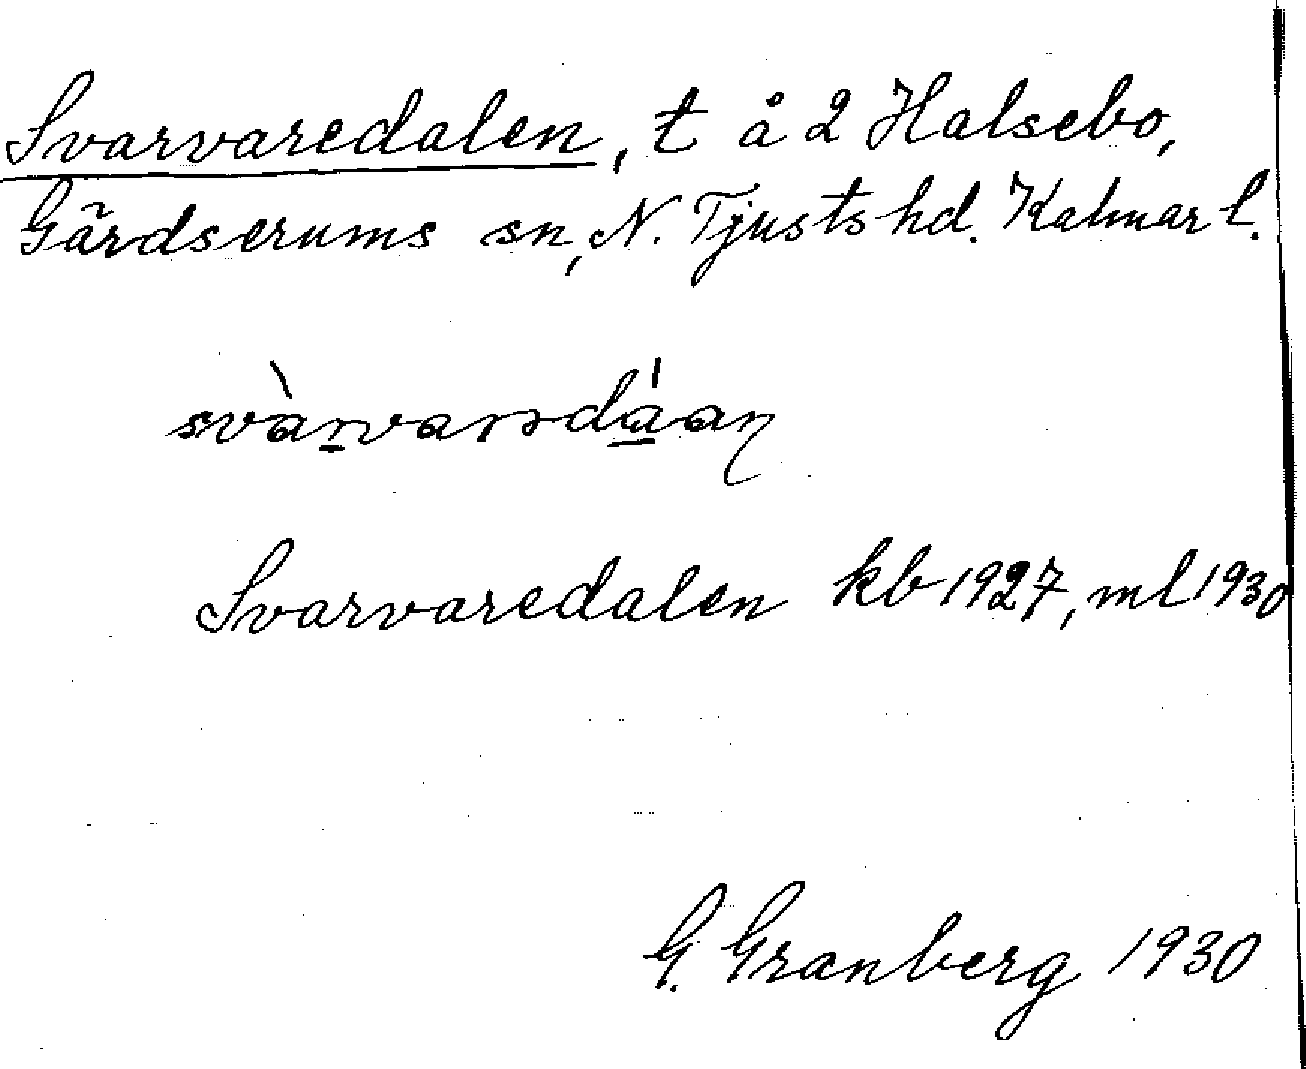 Svarvaredalen, t å 2 Halsebo,
Gärdserums sn, N. Tjusts hd. Kalmar l.
svàrvarədáan
Svarvaredalen kb 1927, ml 1930
G. Granberg 1930